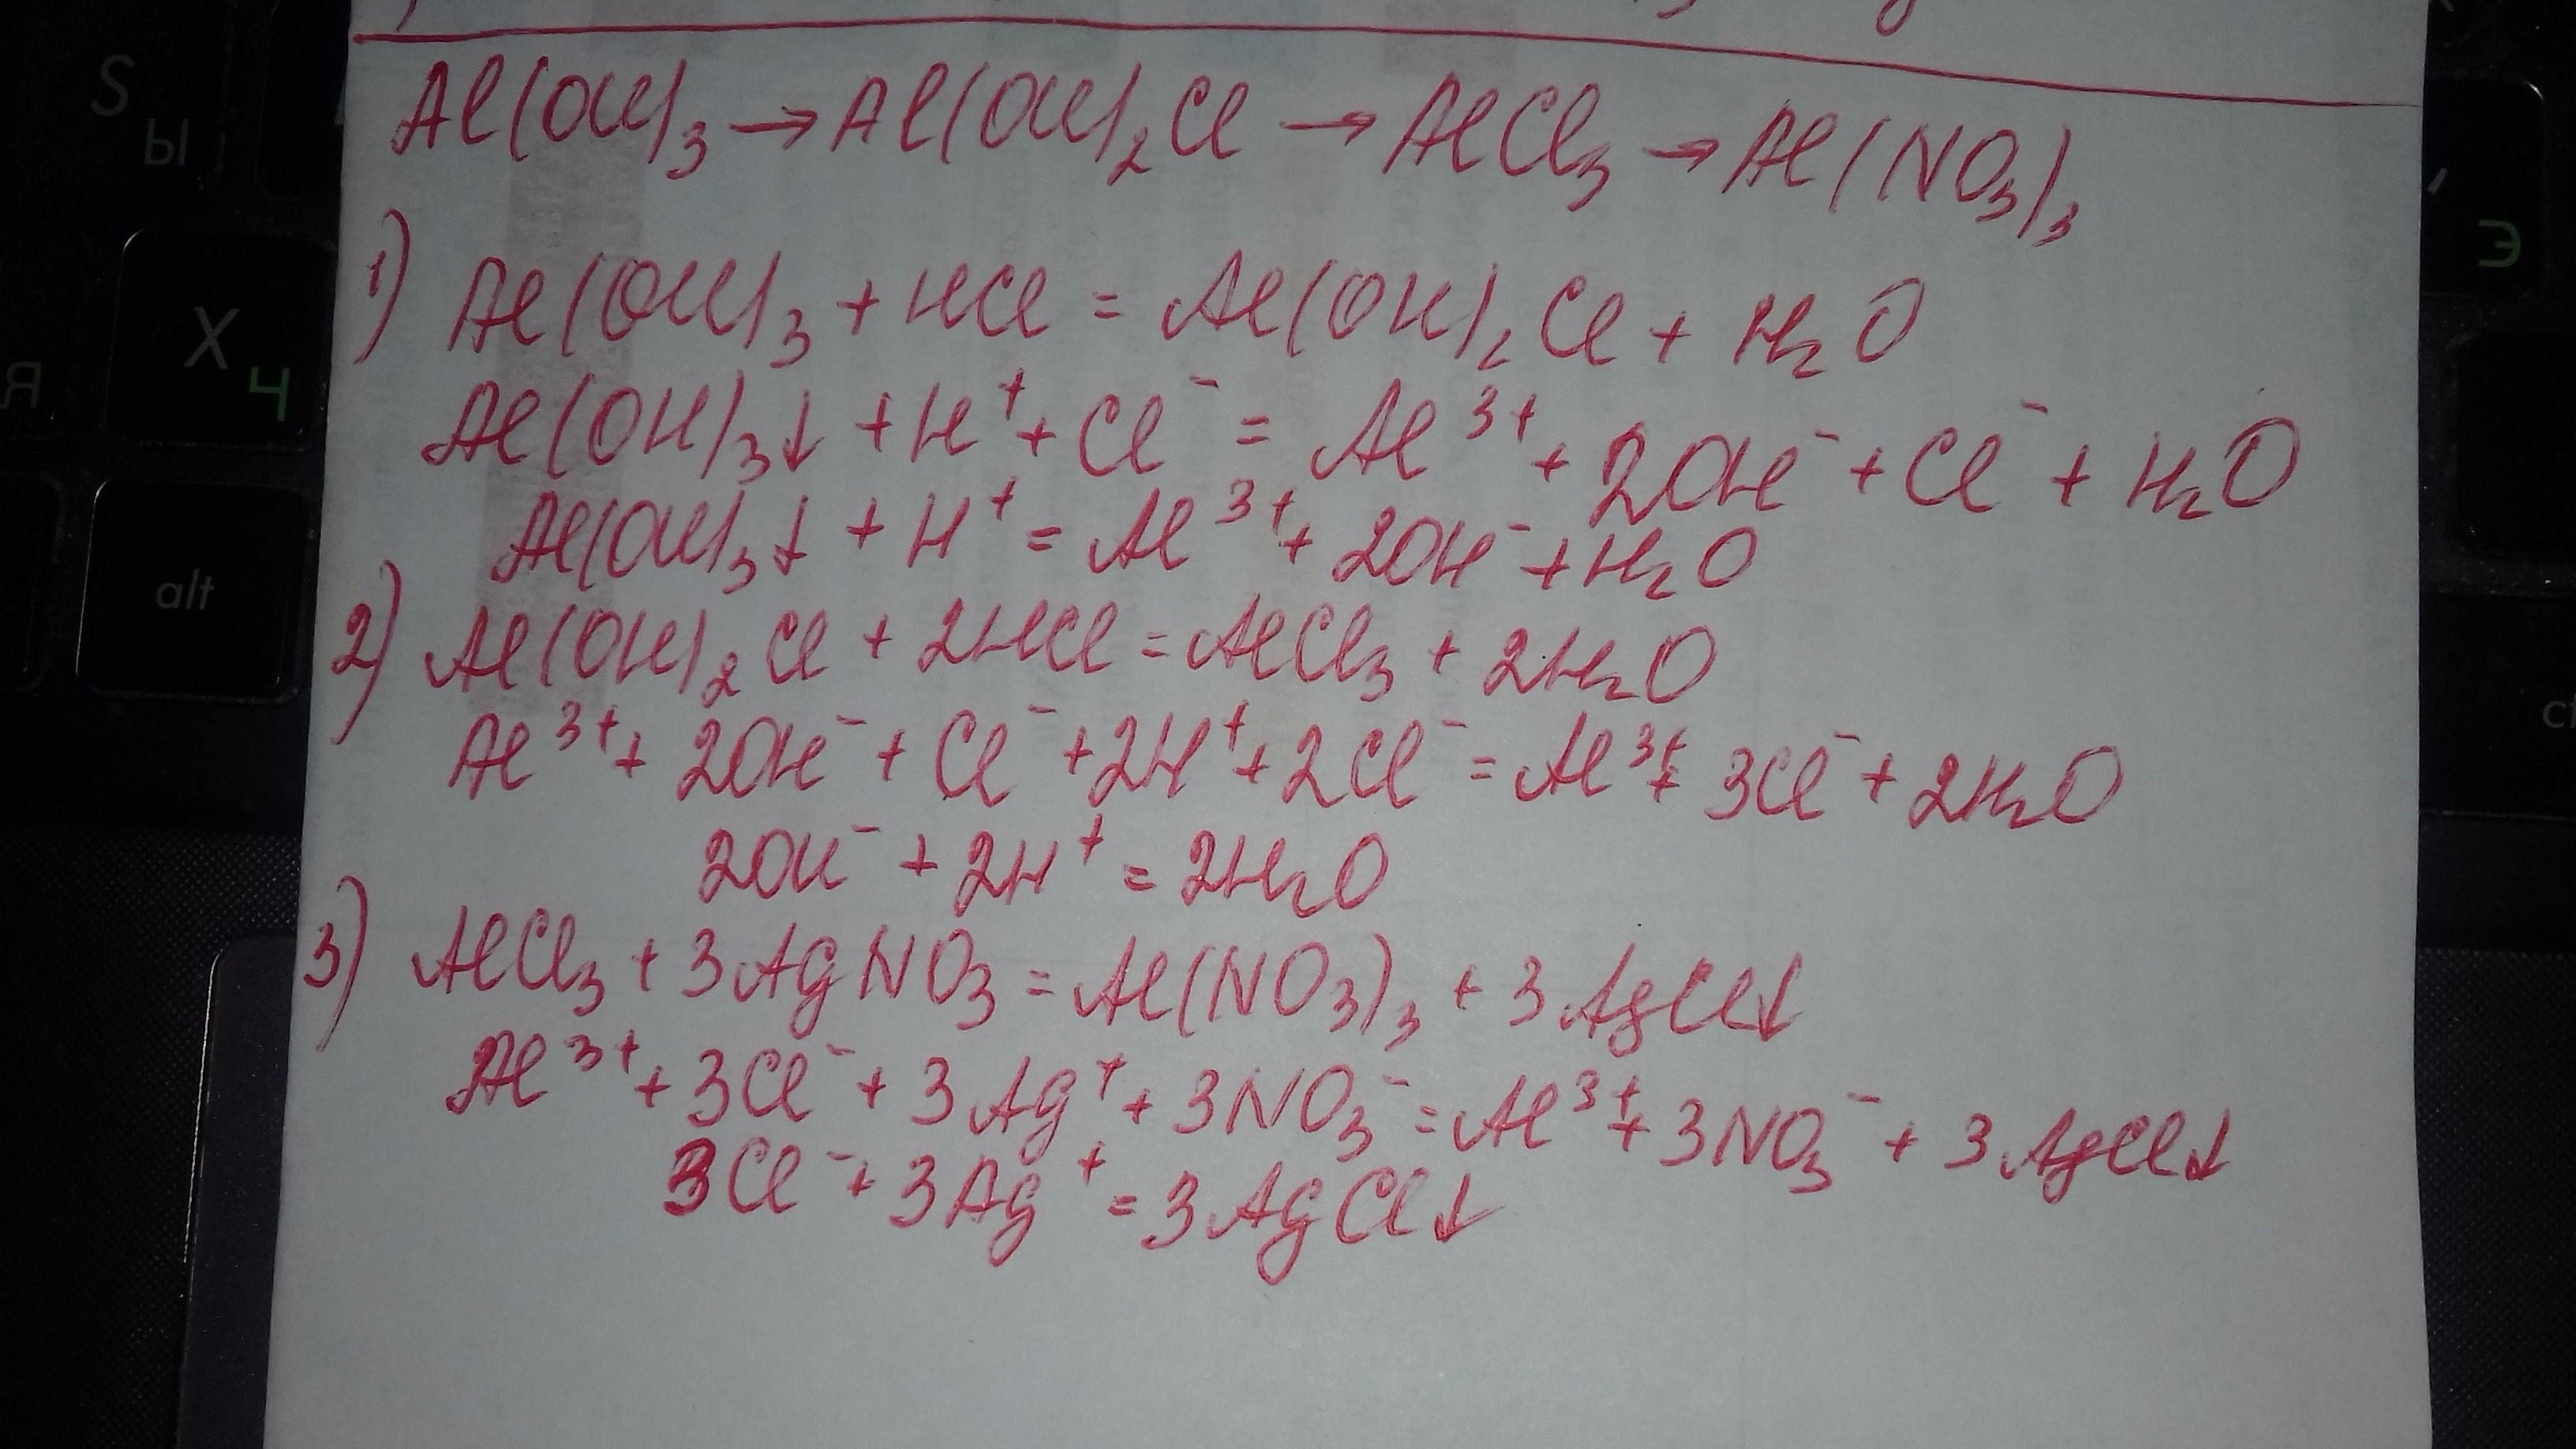 Al(OH)₃ → Al(OH)₂Cl → AlCl₃ → Al(NO₃)₃
1) Al(OH)₃ + HCl = Al(OH)₂Cl + H₂O
Al(OH)₃↓ + H⁺ + Cl⁻ = Al³⁺ + 2OH⁻ + Cl⁻ + H₂O
Al(OH)₃↓ + H⁺ = Al³⁺ + 2OH⁻ + H₂O
2) Al(OH)₂Cl + 2HCl = AlCl₃ + 2H₂O
Al³⁺ + 2OH⁻ + Cl⁻ + 2H⁺ + 2Cl⁻ = Al³⁺ + 3Cl⁻ + 2H₂O
2OH⁻ + 2H⁺ = 2H₂O
3) AlCl₃ + 3AgNO₃ = Al(NO₃)₃ + 3AgCl↓
Al³⁺ + 3Cl⁻ + 3Ag⁺ + 3NO₃⁻ = Al³⁺ + 3NO₃⁻ + 3AgCl↓
3Cl⁻ + 3Ag⁺ = 3AgCl↓
S
Ы
X
Ч
Я
alt
Э